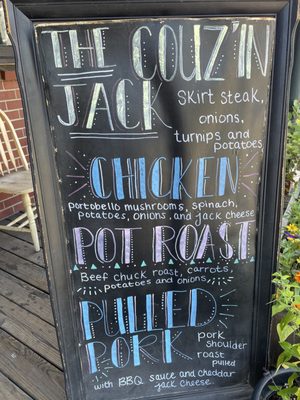 THE COUZ'IN
JACK
Skirt steak,
onions,
turnips and
potatoes
CHICKEN
portobello mushrooms, spinach,
potatoes, onions, and jack cheese
POT ROAST
Beef chuck roast, carrots,
potatoes and onions
PULLED
PORK
pork
shoulder
roast
pulled
with BBQ sauce and cheddar
jack cheese.